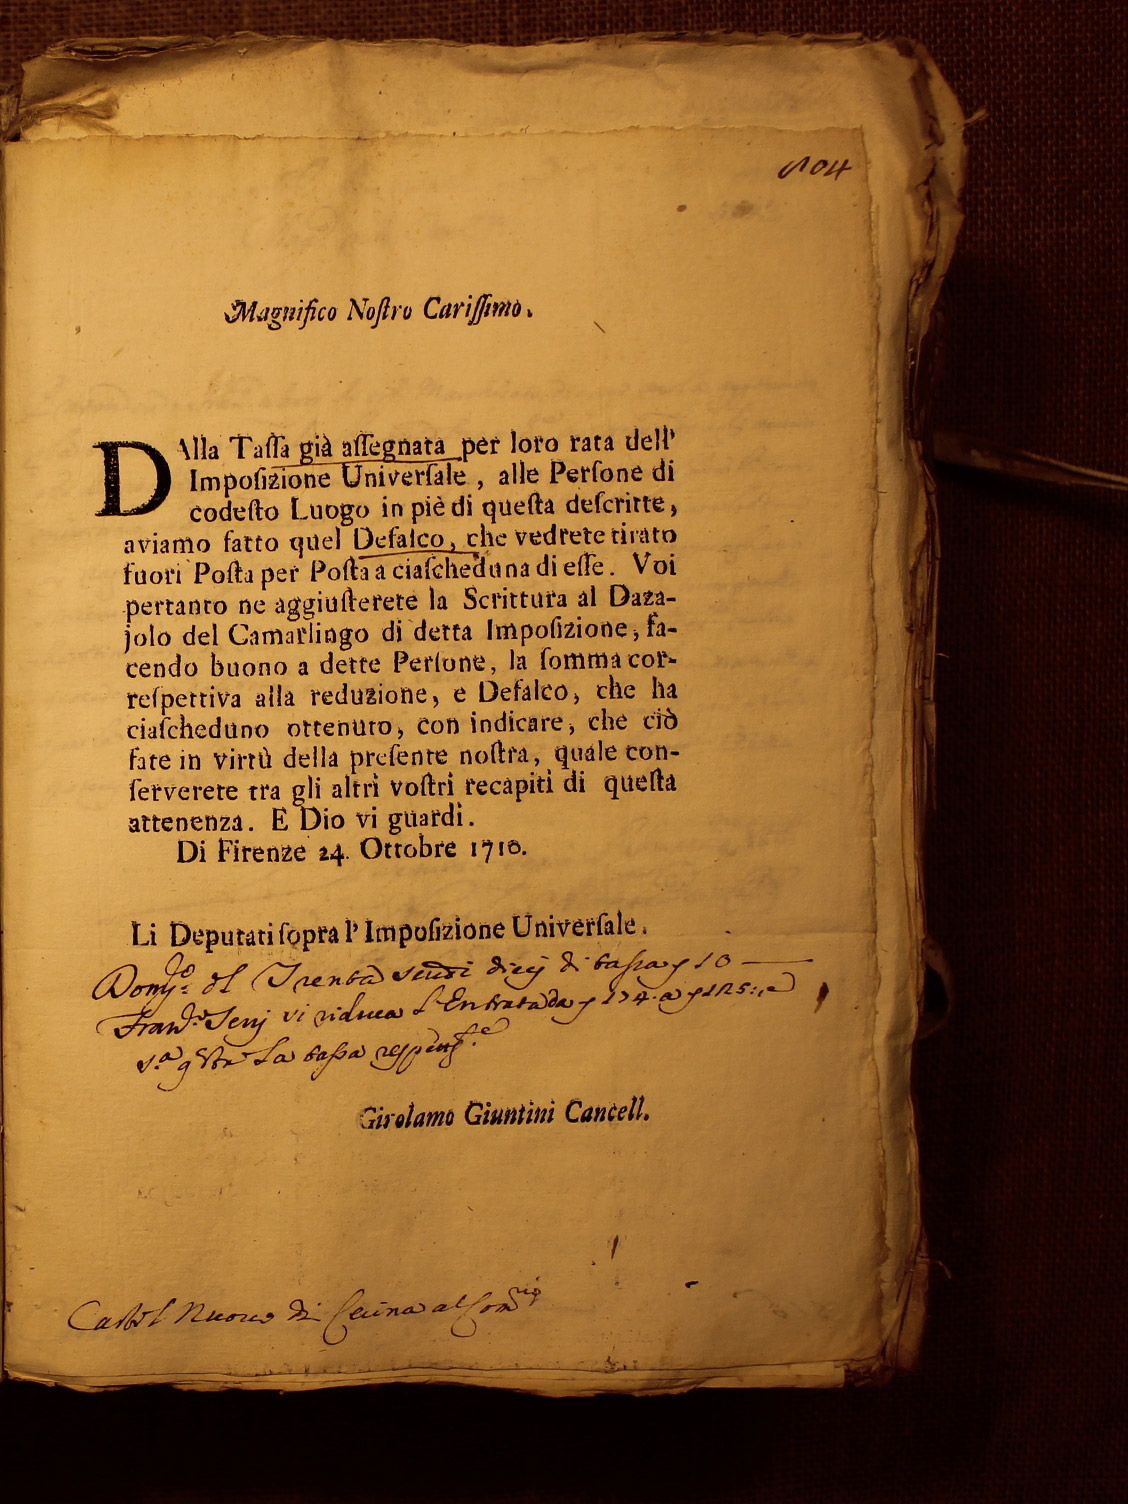 804
Magnifico Noſtro Cariſſimo.
DAlla Taſſa già aſſegnata per loro rata dell'
Impoſizione Univerſale, alle Perſone di
codeſto Luogo in piè di queſta deſcritte,
aviamo fatto quel Defalco, che vedrete tirato
fuori Poſta per Poſta a ciaſcheduna di eſſe. Voi
pertanto ne aggiuſterete la Scrittura al Daza-
jolo del Camarlingo di detta Impoſizione, fa-
cendo buono a dette Perſone, la ſomma cor-
reſpettiva alla reduzione, e Defalco, che ha
ciaſcheduno ottenuto, con indicare, che ciò
fate in virtù della preſente noſtra, quale con-
ſerverete tra gli altri voſtri recapiti di queſta
attenenza. E Dio vi guardi.
Di Firenze 24. Ottobre 1710.
Li Deputati ſopra l' Impoſizione Univerſale.
Trenta scudi dieci di taſsa 10
vi riduca l'Entrata da 174. a
la taſsa
Girolamo Giuntini Cancell.
Castel Nuovo di Cecina al Com.rio